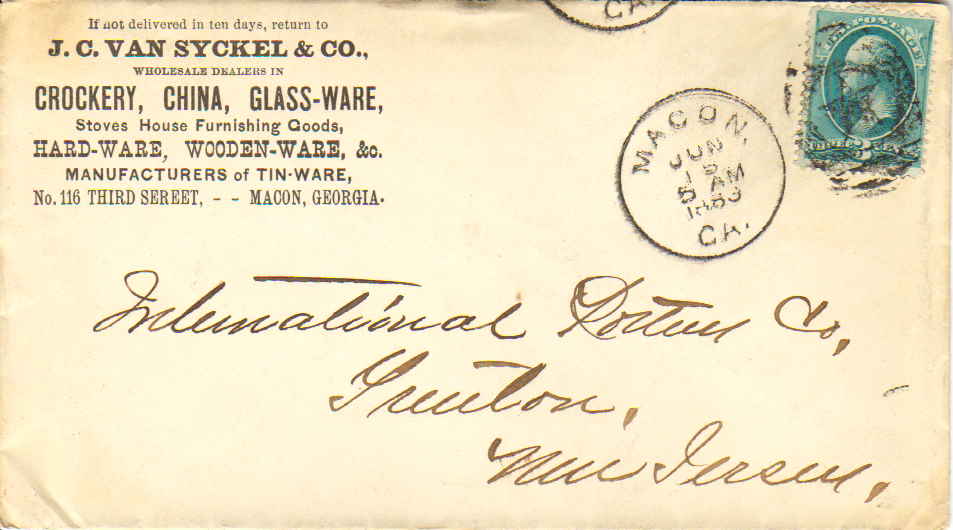 If not delivered in ten days, return to
J. C. VAN SYCKEL & CO.,
WHOLESALE DEALERS IN
CROCKERY, CHINA, GLASS-WARE,
Stoves House Furnishing Goods,
HARD-WARE, WOODEN-WARE, &c.
MANUFACTURERS of TIN-WARE,
No. 116 THIRD SEREET, - - MACON, GEORGIA.
GA.
MACON,
JUN
15
5 AM
1883
GA.
U.S. POSTAGE
International Pottery Co,
Trenton,
New Jersey,